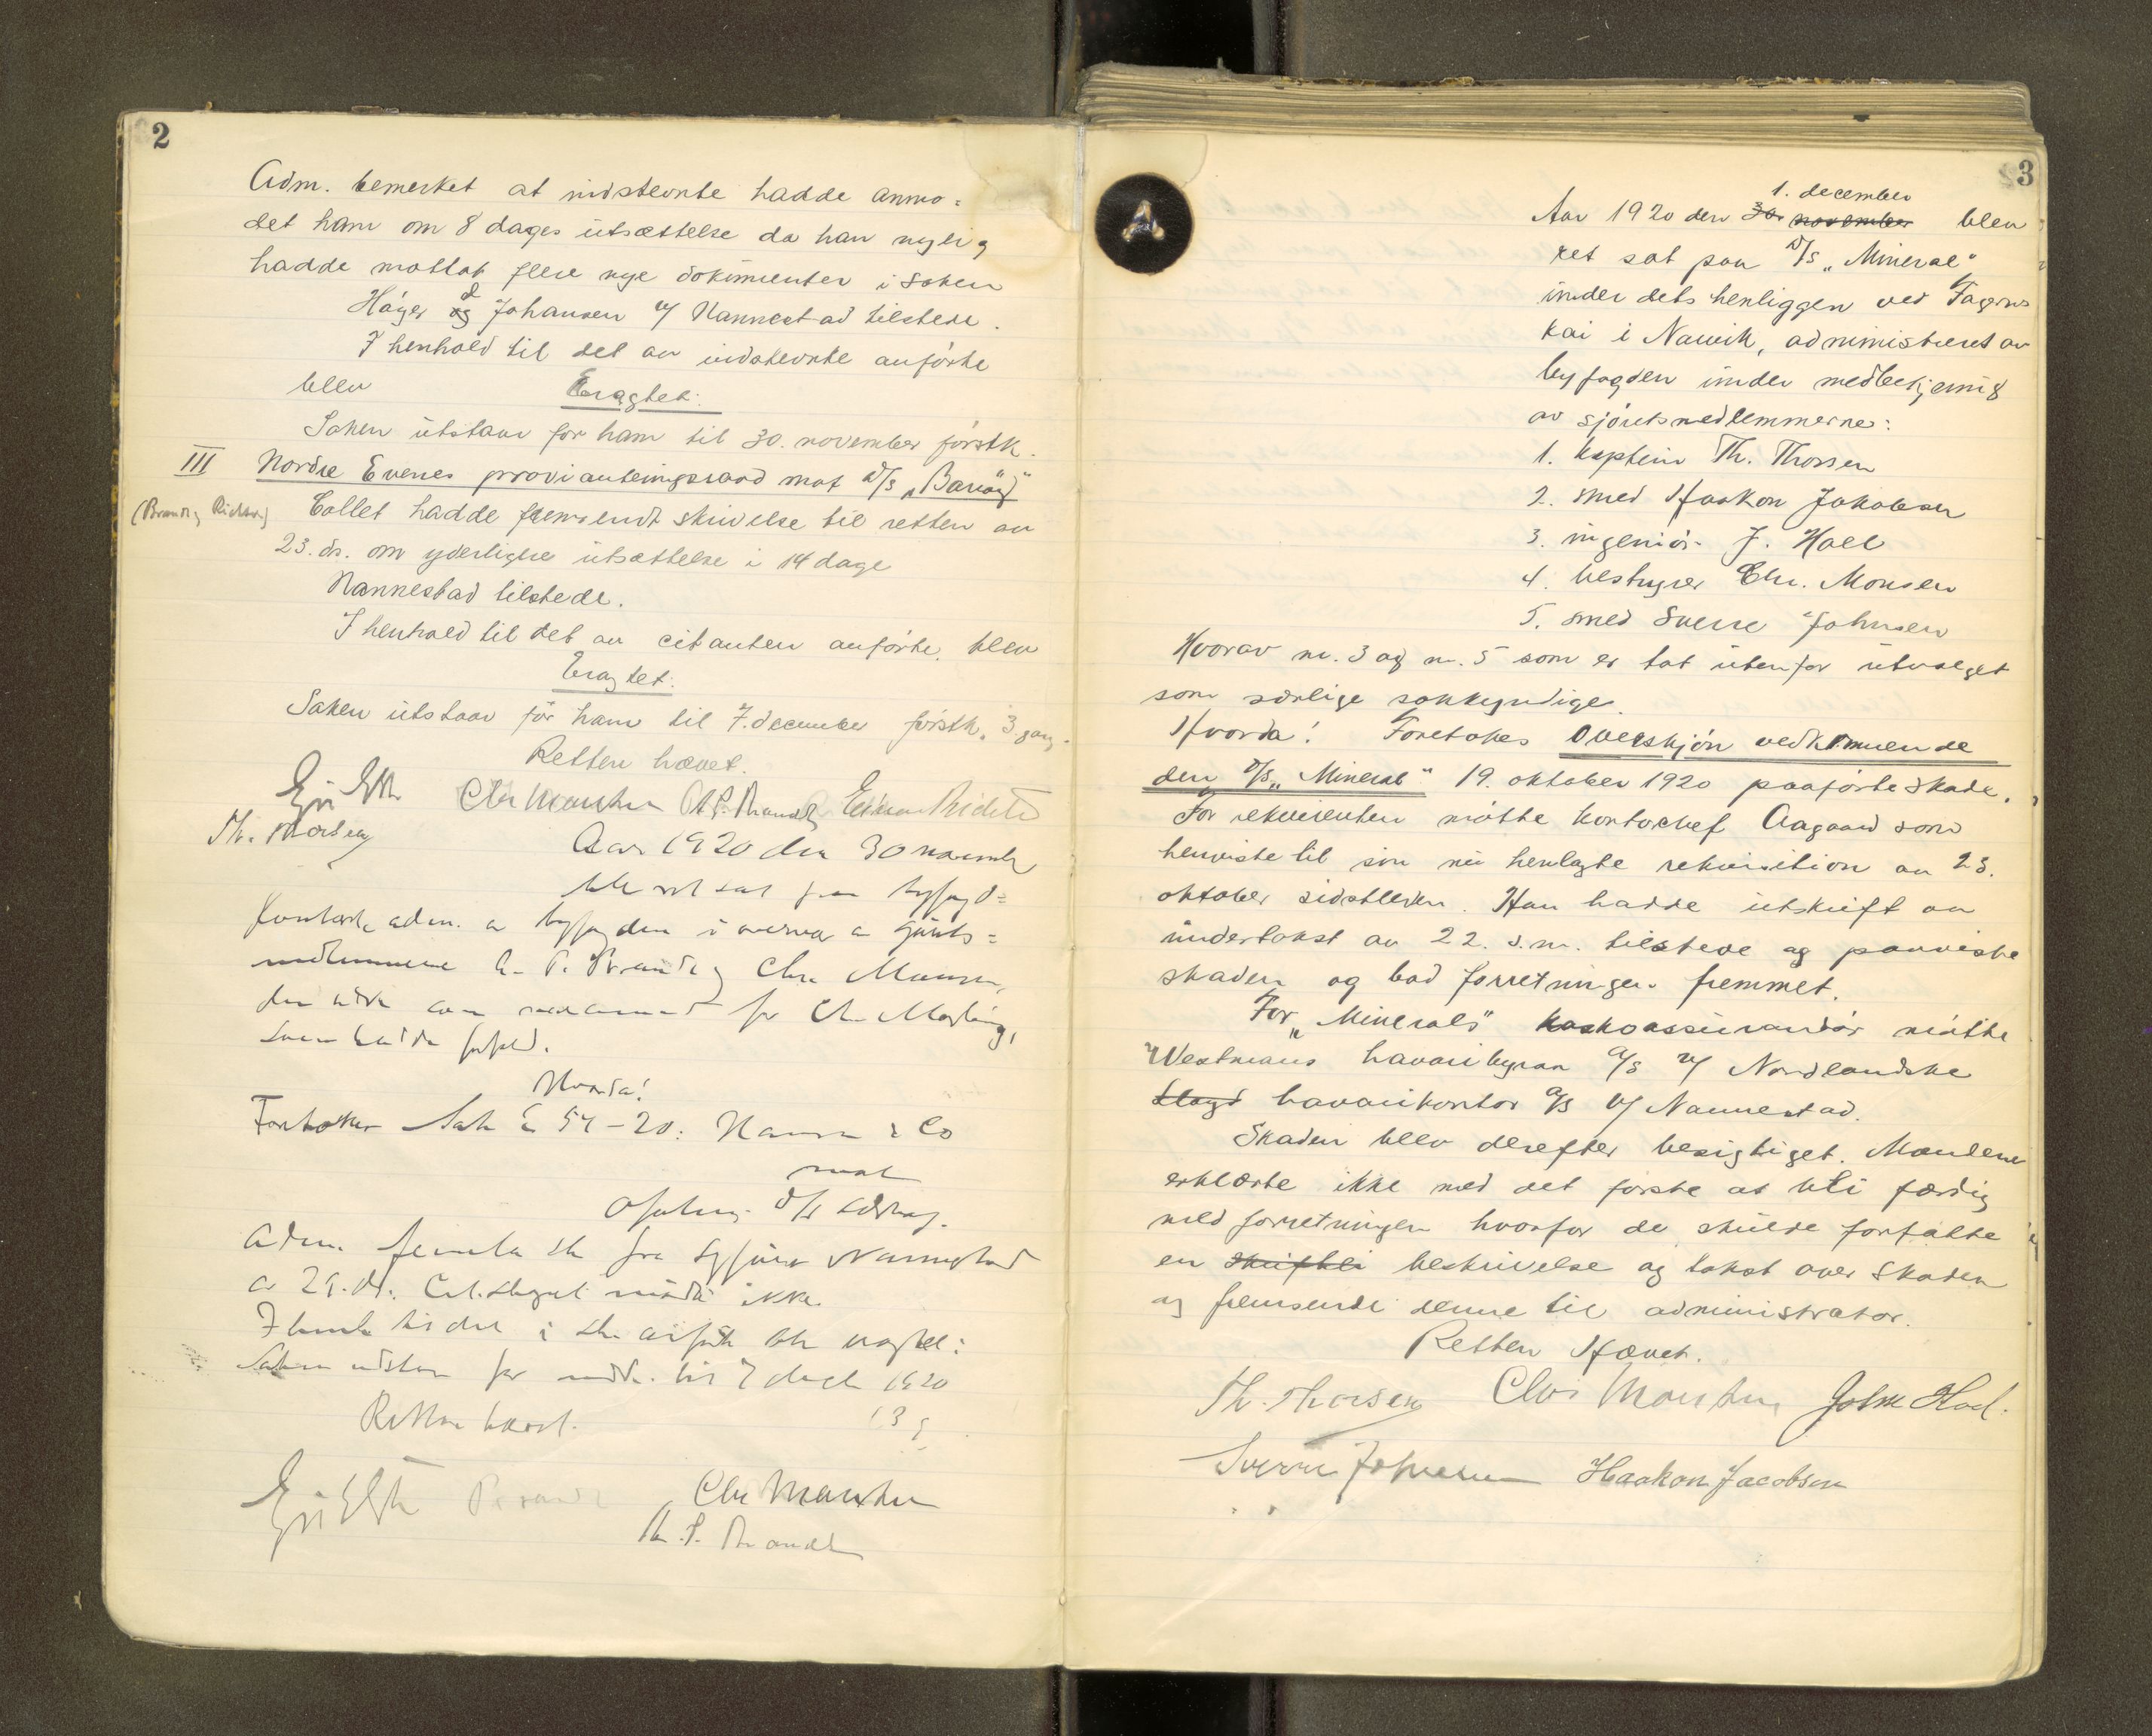 2
Adm. bemerket at indstevnte hadde anmo=
det ham om 8 dages utsættelse da han nylig
hadde mottat flere nye dokumenter i saken
Høyer & Johansen v/ Nannestad tilstede.
I henhold til det av indstevnte anførte
blev Eragtet:
Saken utstaar for ham til 30. november førstk.
III Nordre Evenes provianteringsraad mot D/S "Barøy"
(Brandt, Richter) Collet hadde fremsendt skrivelse til retten av
23. ds. om yderligere utsættelse i 14 dage
Nannestad tilstede.
I henhold til det av citanten anførte, blev
Eragtet:
Saken utstaar for ham til 7. december førstk. 3 gang.
Retten hævet.
Chr Monsen Brandt Einar Richter
Th. Thorsen
Aar 1920 den 30 november
blev ret sat paa byfogd=
kontoret, adm. av byfogden i overvær av sjørets=
medlemmerne Brandt og Chr. Monsen,
den sidste som for
som hadde forfald.
Hvorda!
Foretokes Sak E 54-20: & Co
mot
Ofotens D/S
Adm. fremla skr. fra Nannestad
av 29. ds. møtte ikke.
I henhold til det i skr. anførte blev eragtet:
Saken utstaar for til 7 decb 1920
Retten hævet. (3 g
Brandt Chr Monsen
Brandt
3
1. december
Aar 1920 den 30. november blev
ret sat paa D/S "Mineral"
under dets henliggen ved Fagernes
kai i Narvik, administreret av
byfogden under medbetjening
av sjøretsmedlemmerne:
1. kaptein Th. Thorsen
2. smed Haakon Jakobsen
3. ingeniør J. Hoel
4. bestyrer Chr. Monsen
5. smed Sverre Johnsen
Hvorav nr. 3 og nr. 5 som er tat utenfor utvalget
som særlige sakkyndige.
Hvorda! Foretokes Overskjøn vedkommende
den D/S "Mineral" 19. oktober 1920 paaførte skade.
For rekvirenten møtte kontorchef Aagaard som
henviste til sin nu henlagte rekvisition av 23.
oktober sidstleden. Han hadde utskrift av
undertakst av 22. s.m. tilstede og paaviste
skaden og bad forretningen fremmet.
For "Minerals" kaskoassurandør møtte
Westmans havaribyraa A/S v/ Nordlandske
Lloyd havarikontor A/S v/ Nannestad.
Skaden blev derefter besigtiget. Mændene
erklærte ikke med det første at bli færdig
med forretningen hvorfor de skulde forfatte
en skriftli beskrivelse og takst over skaden
og fremsende denne til administrator.
Retten Hævet.
Th. Thorsen Chr Monsen John Hoel.
Sverre Johnsen Haakon Jacobsen